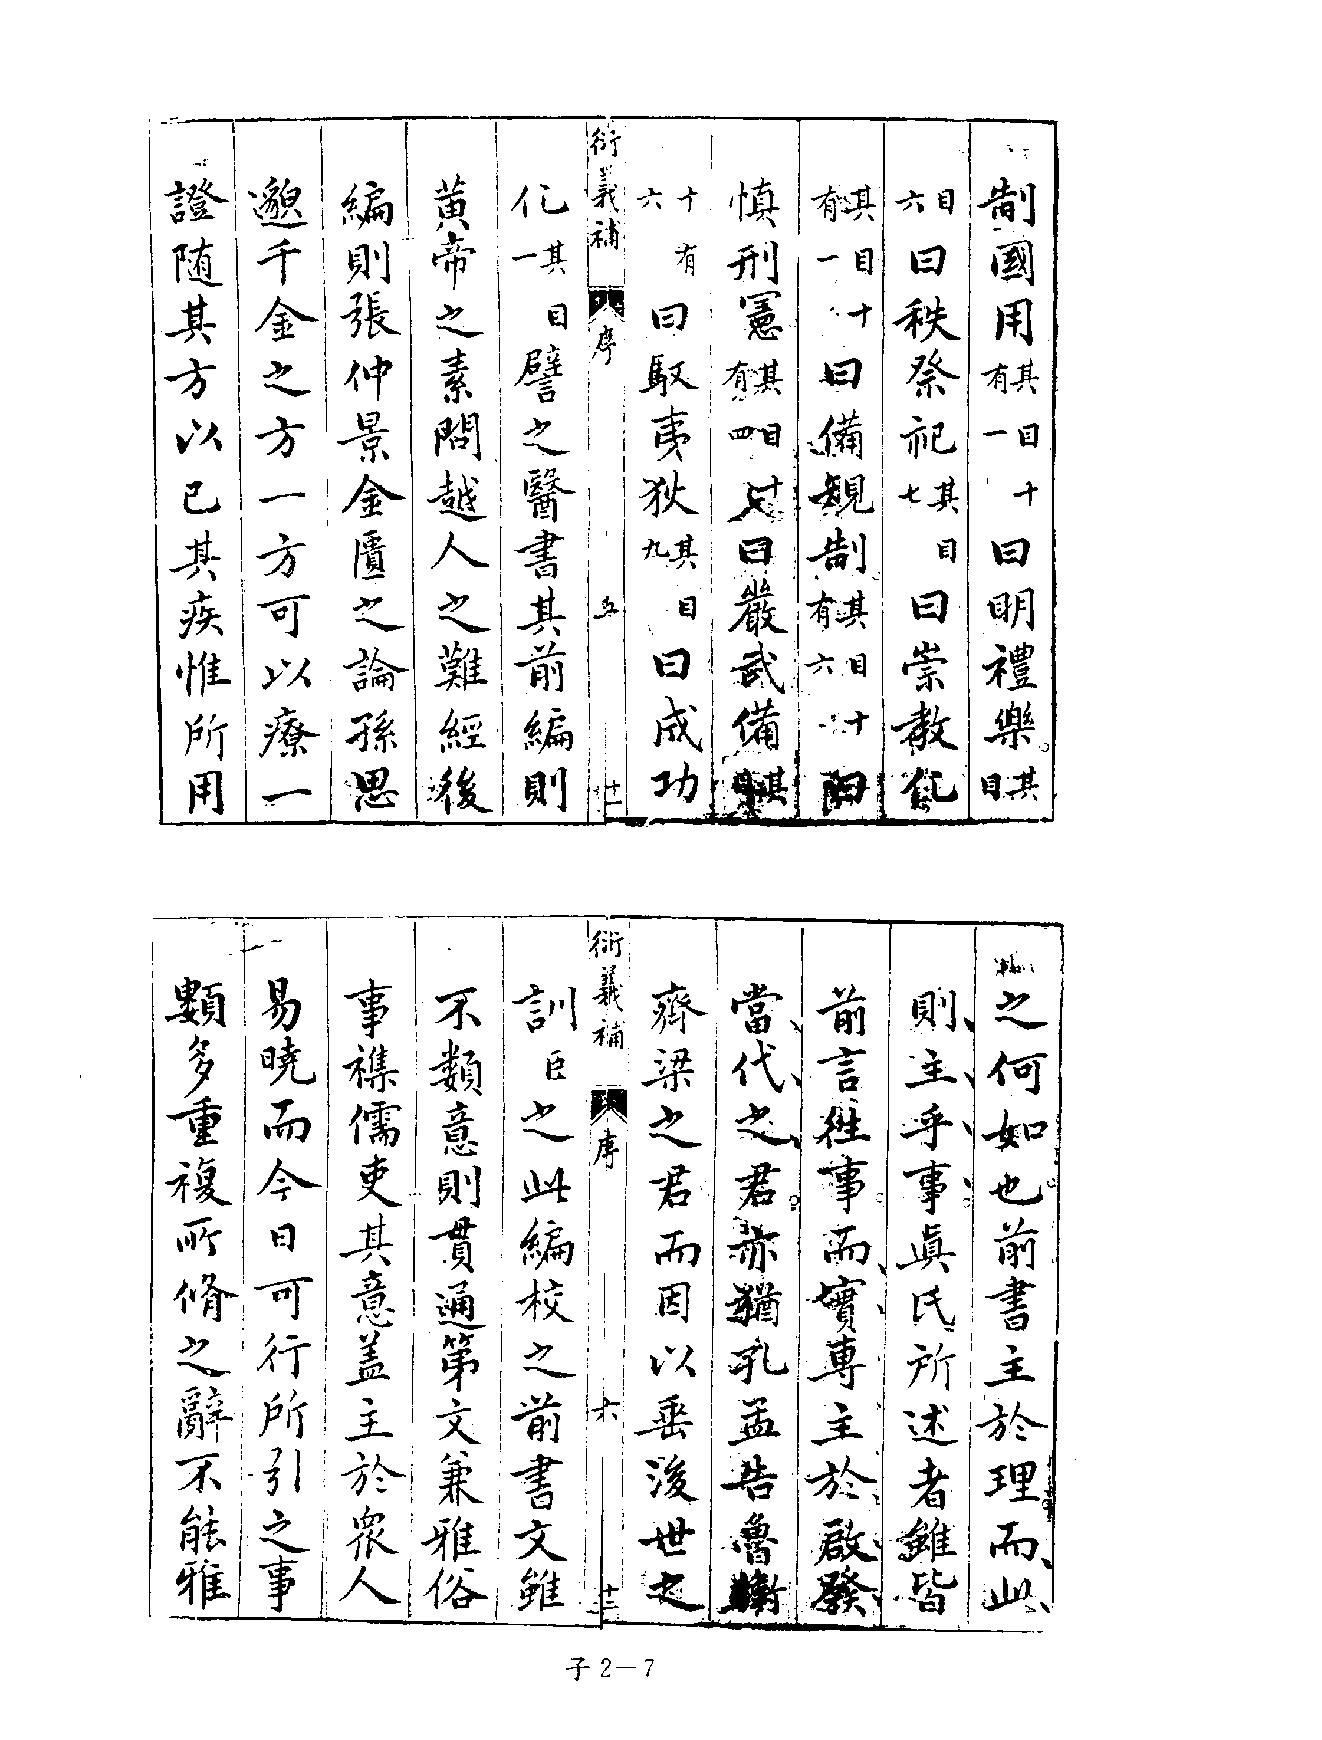 制國用其目十有一曰明禮樂其目
目六曰秩祭祀其目七曰崇教化
其目十有一曰備規制其目十有六曰
慎刑憲其目十有四又曰嚴武備其目
十有六曰馭夷狄其目九曰成功
衍義補 序 五 十一
化其目一譬之醫書其前編則
黃帝之素問越人之難經後
編則張仲景金匱之論孫思
邈千金之方一方可以療一
證隨其方以已其疾惟所用
之何如也前書主於理而此
則主乎事眞氏所述者雖皆
前言徃事而實專主於啟發
當代之君亦猶孔孟告魯衛
齊梁之君而因以垂後世之
衍義補 序 六 十二
訓臣之此編校之前書文雖
不類意則貫通第文兼雅俗
事襍儒吏其意盖主於眾人
易曉而今日可行所引之事
類多重複所脩之辭不能雅
子2—7